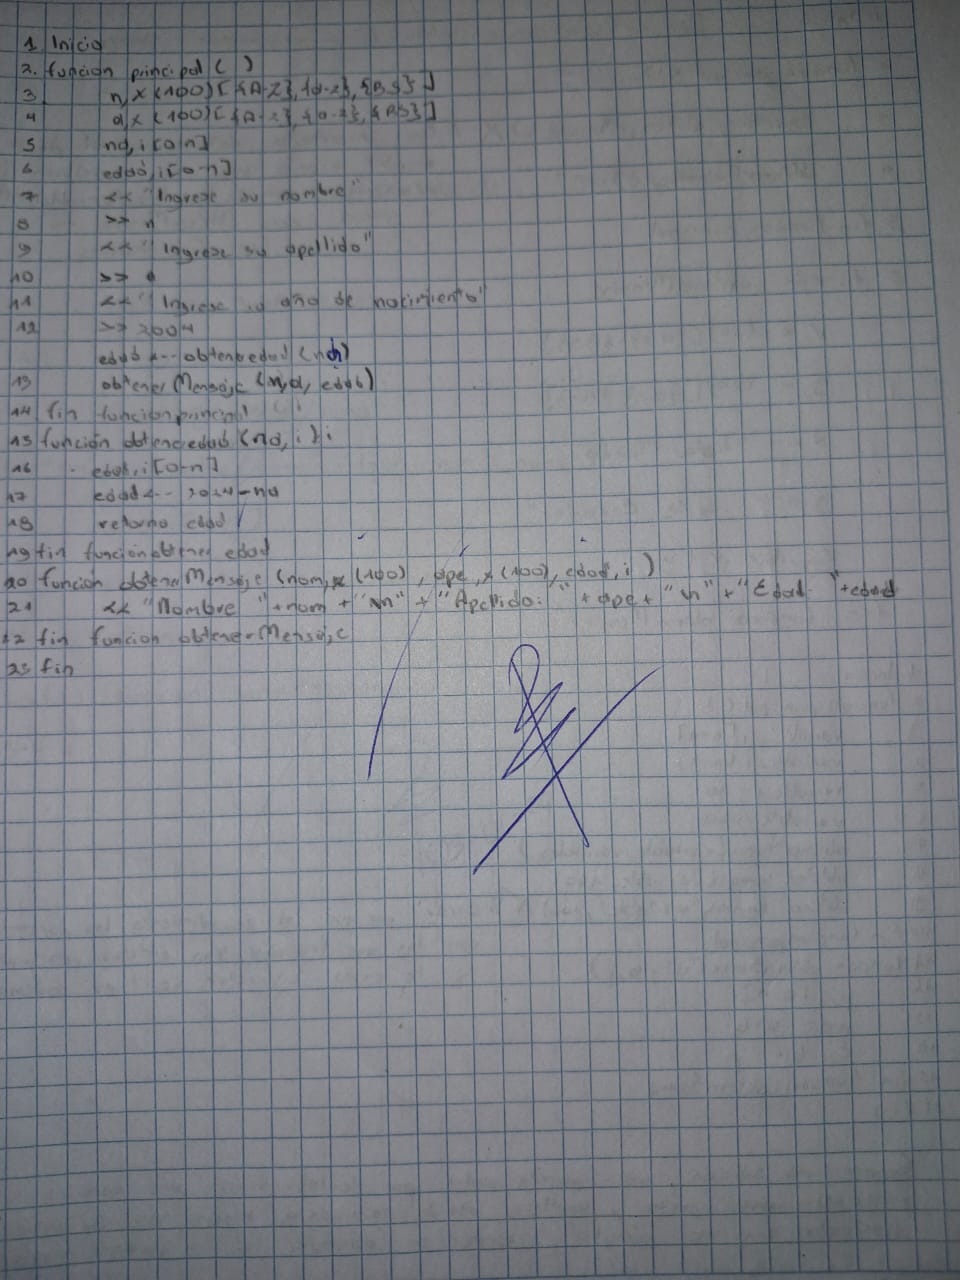 1 Inicio
2. función principal ( )
3 n, x (100) [ {A-Z}, {a-z}, {BS} ]
4 a, x (100) [ {A-Z}, {a-z}, {BS} ]
5 na, i [0-n]
6 edad, i [0-n]
7 << "Ingrese su nombre"
8 >> n
9 << "Ingrese su apellido"
10 >> a
11 << "Ingrese su año de nacimiento"
12 >> 2004
edad <-- obteneredad (na)
13 obtenerMensaje (n, a, edad)
14 fin función principal ( )
15 función obteneredad (na, i) i
16 edad, i [0-n]
17 edad <-- 2024 - na
18 retorno edad
19 fin función obtener edad
20 función obtenerMensaje (nom, x (100), ape, x (100), edad, i )
21 << "Nombre "+nom + "\n" + "Apellido: " + ape + "\n" + "Edad "+edad
22 fin funcion obtenerMensaje
23 fin